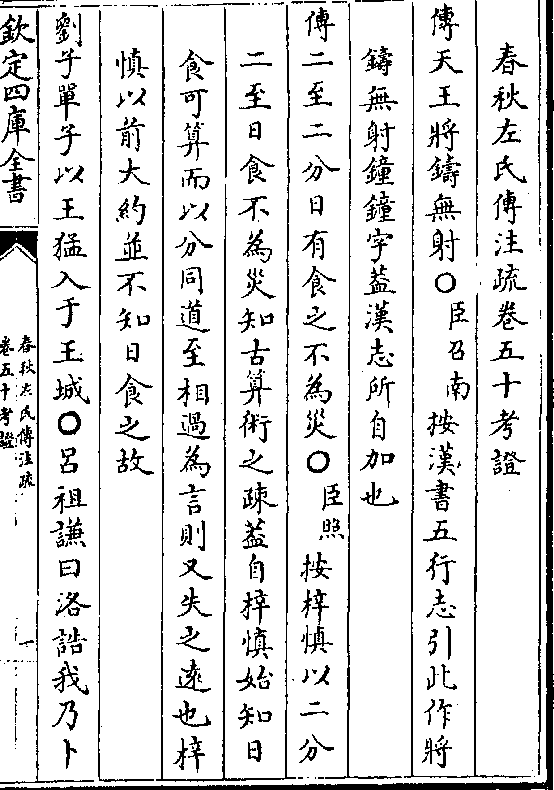 春秋左氏傳注疏卷五十考證
傳天王將鑄無射○臣召南按漢書五行志引此作將
鑄無射鐘鐘字蓋漢志所自加也
傳二至二分日有食之不為災○臣照按梓慎以二分
二至日食不為災知古算術之疎蓋自梓慎始知日
食可算而以分同道至相過為言則又失之遠也梓
慎以前大約並不知日食之故
劉子單子以王猛入于王城○呂祖謙曰洛誥我乃卜
欽定四庫全書
春秋左氏傳注疏
卷五十考證
一